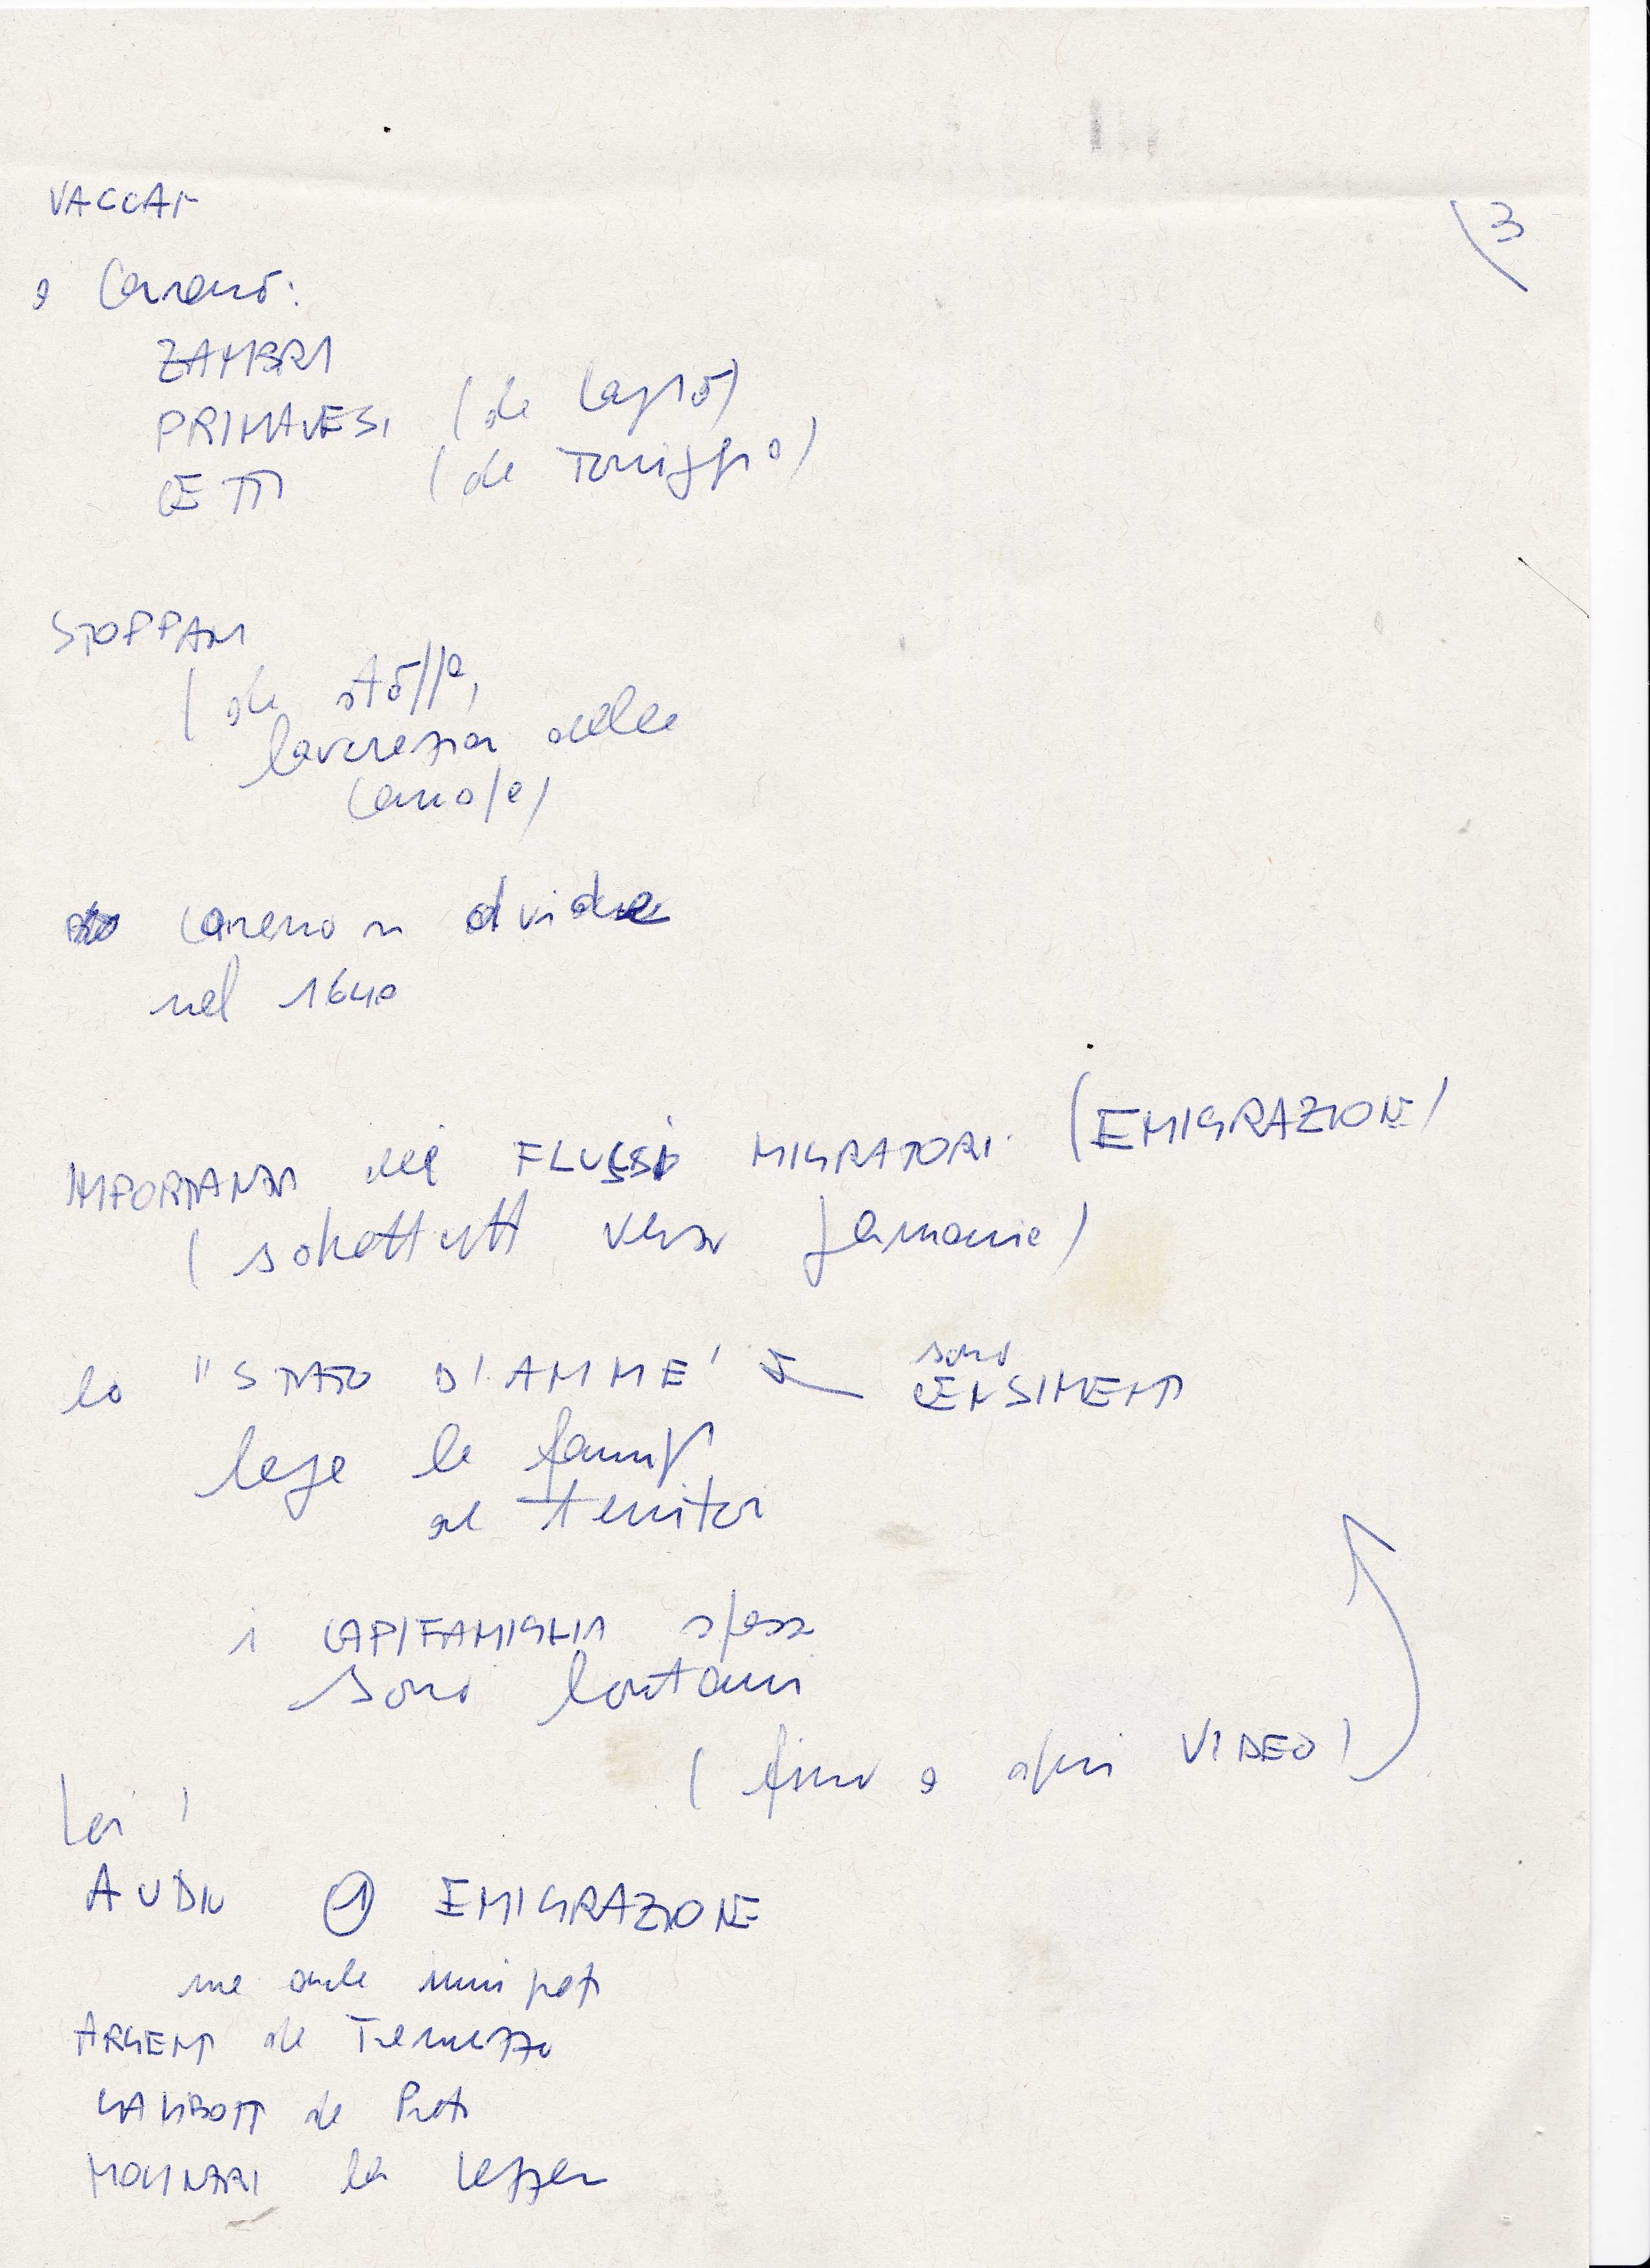 3
VACCAI
a Careno:
ZAMBRI
PRIMAVESI (da Laglio)
CETTI (da Toriggio)
STOPPANI
(da stoffa,
lavorazion della
canapa)
Careno si divide
nel 1640
IMPORTANZA dei FLUSSI MIGRATORI (EMIGRAZIONE)
(soprattutt verso Germania)
lo "STATO D'ANIME" sono
CENSIMENTI
lega le famigl
al territori
i CAPIFAMIGLIA spesso
sono lontani
(fino a qui VIDEO)
Poi
AUDIO 1 EMIGRAZIONE
ma anche immigrati
ARGENTI da Tremezzo
GALIBOTT da Prato
MOLINARI da Lezzeno